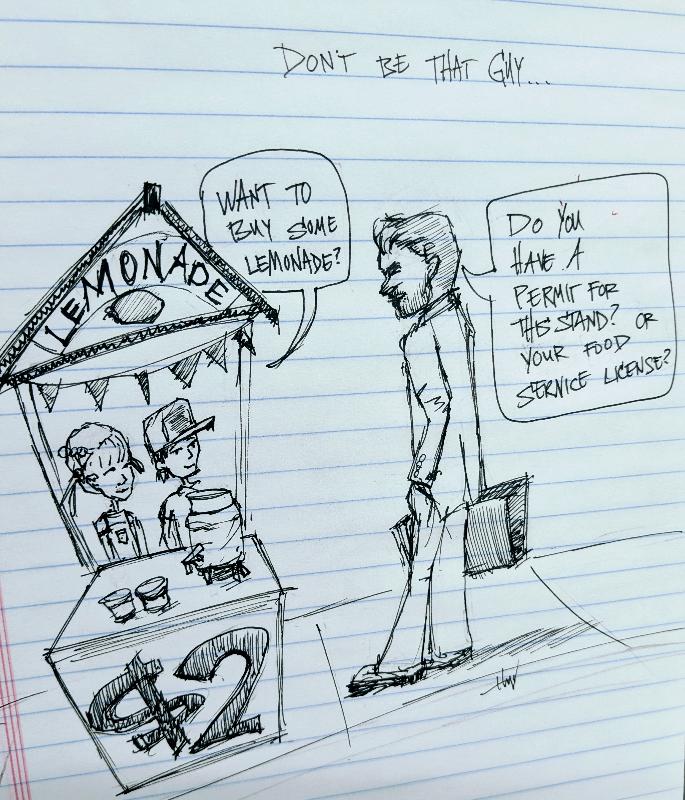 DON'T BE THAT GUY...
WANT TO
BUY SOME
LEMONADE?
DO YOU
HAVE A
PERMIT FOR
THIS STAND? OR
YOUR FOOD
SERVICE LICENSE?
LEMONADE
$2